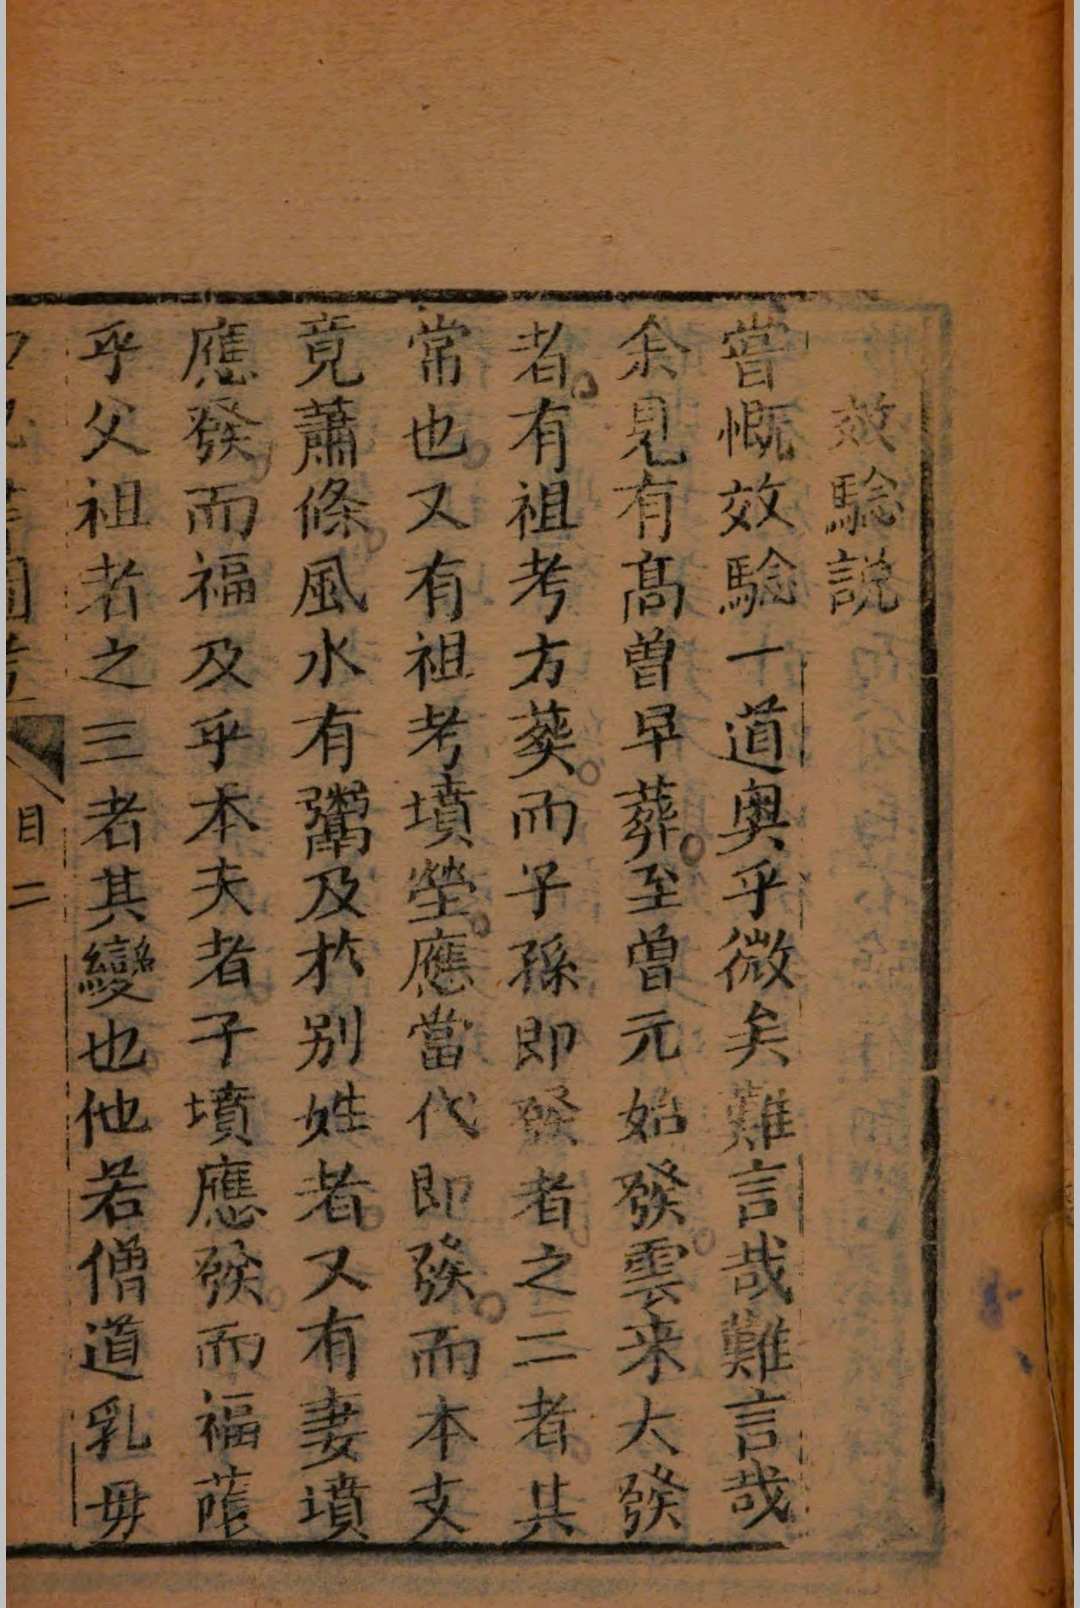 效騐説
嘗慨效騐一道奥乎微矣難言哉難言哉
余見有髙曾早葬至曾元始發雲来大發
者有祖考方葬而子孫即發者之二者其
常也又有祖考墳塋應當代即發而本支
竟蕭條風水有鬻及扵别姓者又有妻墳
應發而福及乎本夫者子墳應發而福蔭
乎父祖者之三者其變也他若僧道乳毋
圖
目二